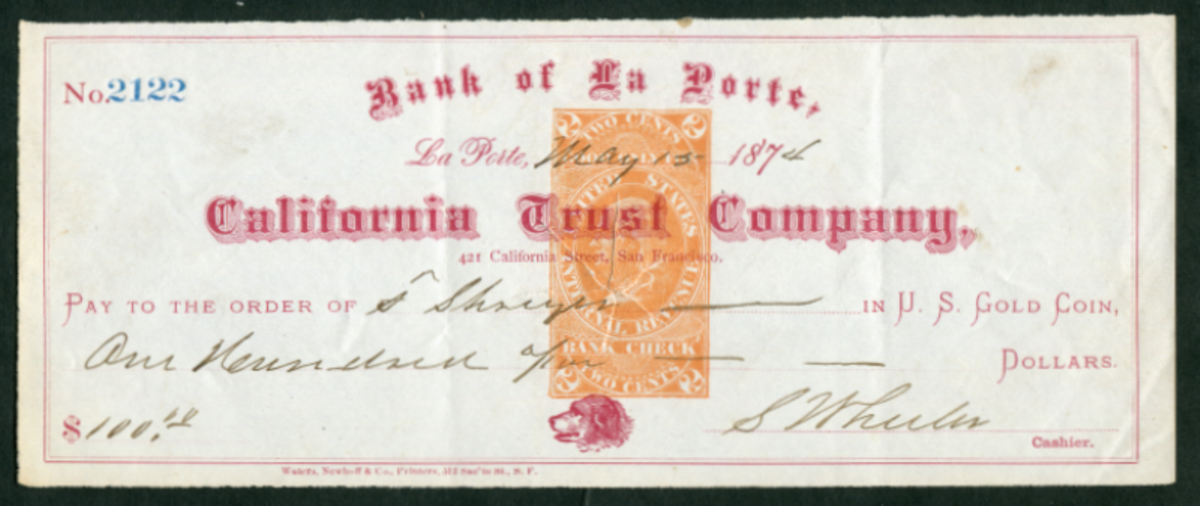 No. 2122
Bank of La Porte,
La Porte, May 15 1874
California Trust Company,
421 California Street, San Francisco.
PAY TO THE ORDER OF S IN U. S. GOLD COIN,
One Hundred DOLLARS.
$100.
S Wheeler
Cashier.
2 TWO CENTS 2
UNITED STATES
INTERNAL REVENUE
BANK CHECK
2 TWO CENTS 2
Waters, Newhoff & Co., Printers, S. F.